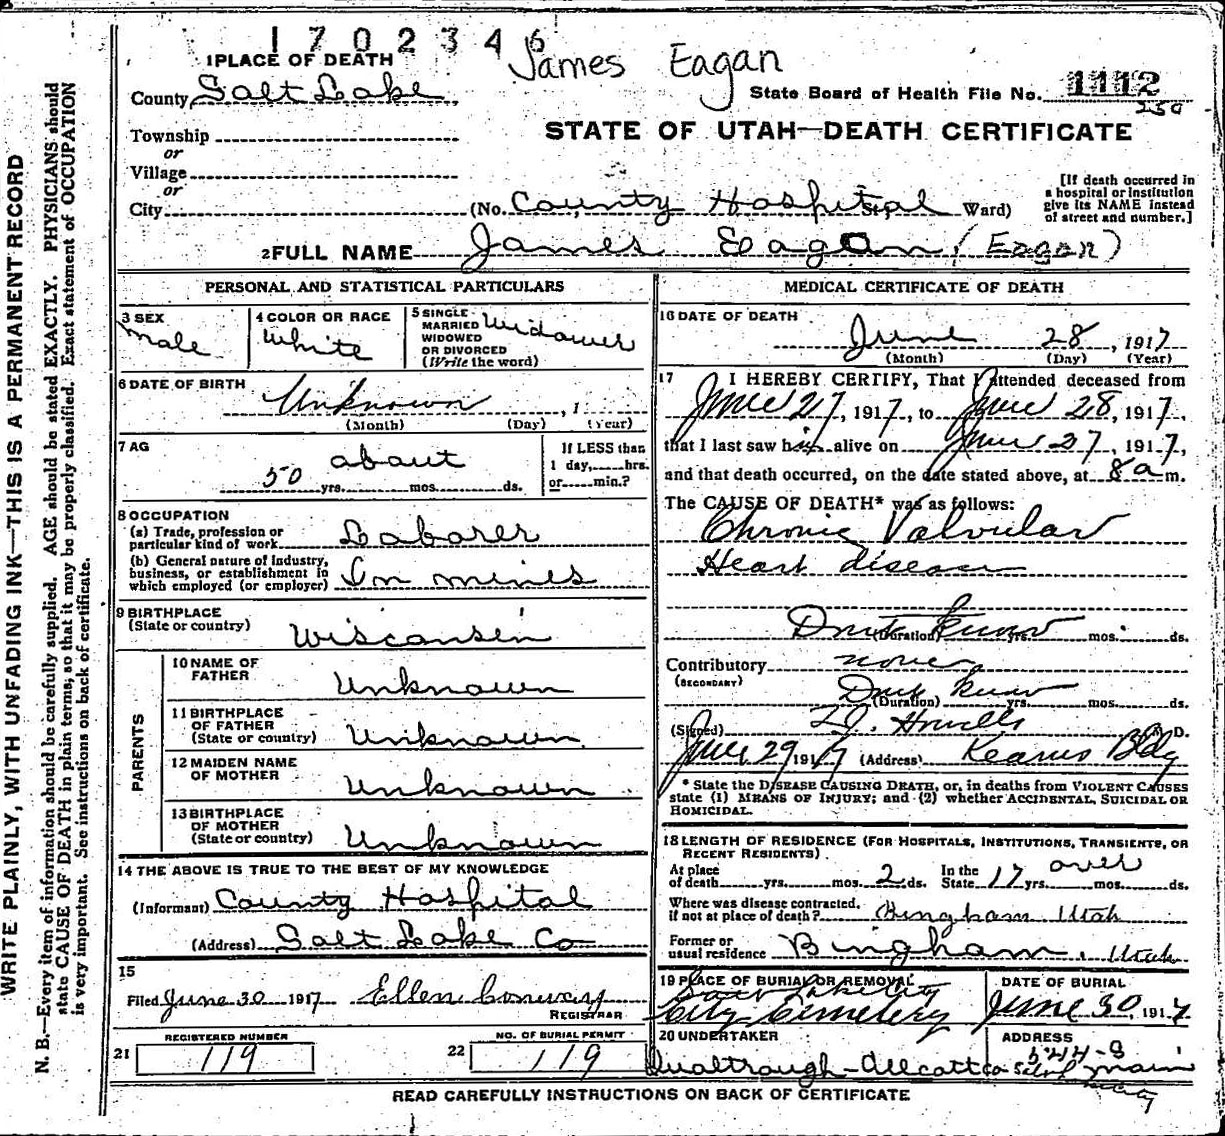 1702346
James Eagan
1 PLACE OF DEATH
County Salt Lake
State Board of Health File No. 1112
250
STATE OF UTAH—DEATH CERTIFICATE
Township
or
Village
or
City (No. County Hospital St., Ward)
[If death occurred in
a hospital or institution
give its NAME instead
of street and number.]
2 FULL NAME James Eagan (Eagan)
PERSONAL AND STATISTICAL PARTICULARS
3 SEX
Male
4 COLOR OR RACE
White
5 SINGLE
MARRIED
WIDOWED
OR DIVORCED
(Write the word)
Widower
6 DATE OF BIRTH
Unknown, 1
(Month) (Day) (Year)
7 AG
about
50 yrs. mos. ds.
If LESS than
1 day, hrs.
or min.?
8 OCCUPATION
(a) Trade, profession or
particular kind of work Laborer
(b) General nature of Industry,
business, or establishment in
which employed (or employer) In mines
9 BIRTHPLACE
(State or country) Wisconsin
PARENTS
10 NAME OF
FATHER Unknown
11 BIRTHPLACE
OF FATHER
(State or country) Unknown
12 MAIDEN NAME
OF MOTHER Unknown
13 BIRTHPLACE
OF MOTHER
(State or country) Unknown
14 THE ABOVE IS TRUE TO THE BEST OF MY KNOWLEDGE
(Informant) County Hospital
(Address) Salt Lake Co
15
Filed June 30 1917 Ellen Conway
REGISTRAR
REGISTERED NUMBER
21 119
NO. OF BURIAL PERMIT
22 119
MEDICAL CERTIFICATE OF DEATH
16 DATE OF DEATH
June 28, 1917
(Month) (Day) (Year)
17 I HEREBY CERTIFY, That I attended deceased from
June 27, 1917, to June 28, 1917,
that I last saw him alive on June 27, 1917,
and that death occurred, on the date stated above, at 8 a m.
The CAUSE OF DEATH* was as follows:
Chronic Valvular
Heart disease
Dont know
(Duration) yrs. mos. ds.
Contributory none
(SECONDARY)
Dont know
(Duration) yrs. mos. ds.
(Signed) Howells M. D.
June 29 1917 (Address) Kearns Bldg
* State the DISEASE CAUSING DEATH, or, in deaths from VIOLENT CAUSES
state (1) MEANS OF INJURY; and (2) whether ACCIDENTAL, SUICIDAL OR
HOMICIDAL.
18 LENGTH OF RESIDENCE (FOR HOSPITALS, INSTITUTIONS, TRANSIENTS, OR
RECENT RESIDENTS)
over
At place
of death yrs. mos. 2 ds. In the
State 17 yrs. mos. ds.
Where was disease contracted,
if not at place of death? Bingham Utah
Former or
usual residence Bingham, Utah
19 PLACE OF BURIAL OR REMOVAL
Salt Lake City
City Cemetery
DATE OF BURIAL
June 30, 1917
20 UNDERTAKER
Qualtrough-Allcott Co
ADDRESS
main
City
READ CAREFULLY INSTRUCTIONS ON BACK OF CERTIFICATE
WRITE PLAINLY, WITH UNFADING INK—THIS IS A PERMANENT RECORD
N. B.—Every item of information should be carefully supplied. AGE should be stated EXACTLY. PHYSICIANS should
state CAUSE OF DEATH in plain terms, so that it may be properly classified. Exact statement of OCCUPATION
is very important. See instructions on back of certificate.